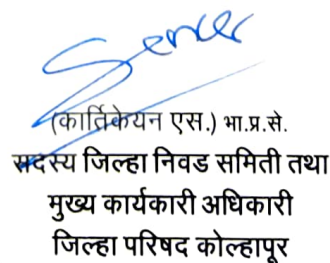 (कार्तिकेयन एस.) भा.प्र.से.
सदस्य जिल्हा निवड समिती तथा
मुख्य कार्यकारी अधिकारी
जिल्हा परिषद कोल्हापूर